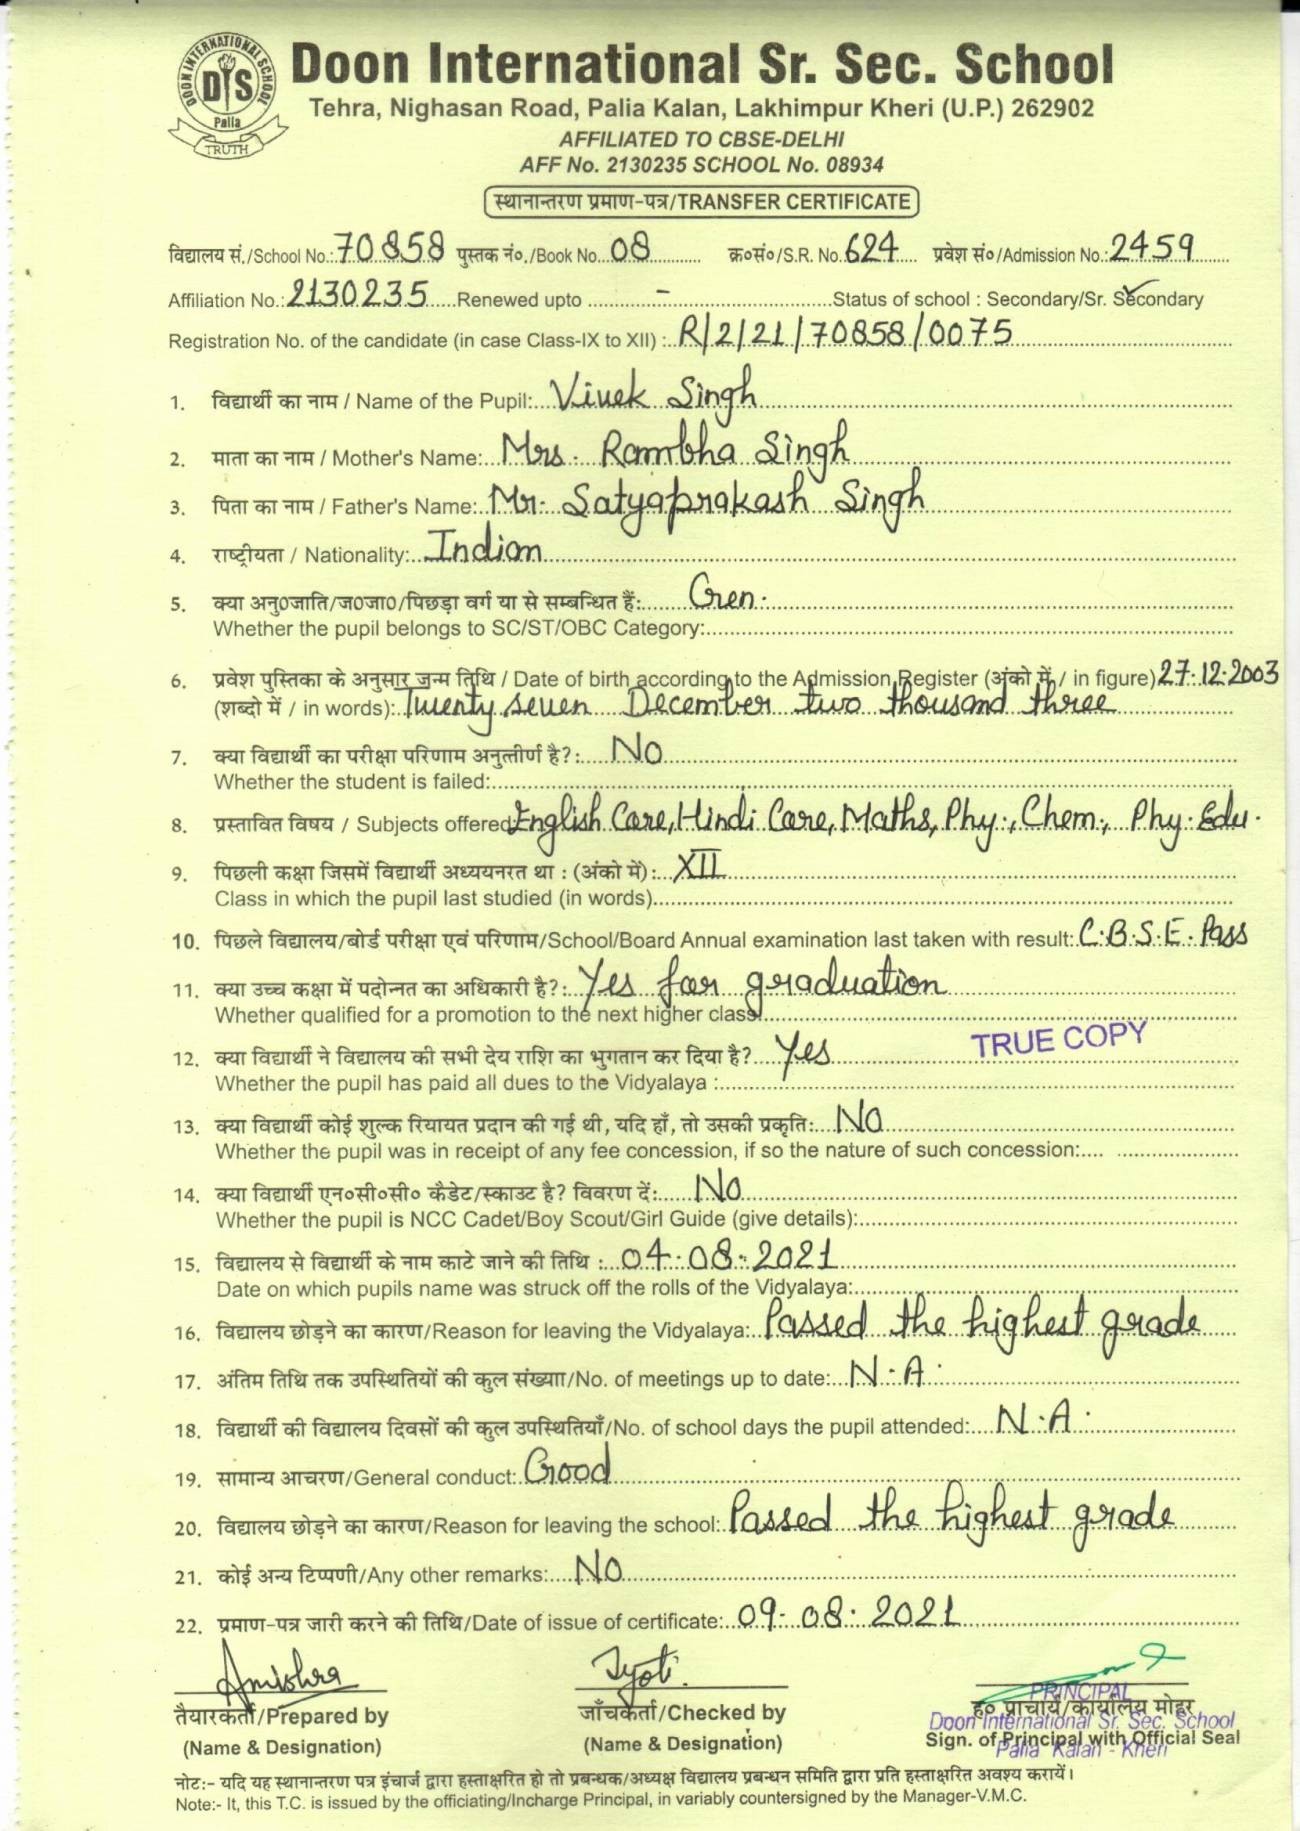 DOON INTERNATIONAL SCHOOL
DIS
Palia
TRUTH
Doon International Sr. Sec. School
Tehra, Nighasan Road, Palia Kalan, Lakhimpur Kheri (U.P.) 262902
AFFILIATED TO CBSE-DELHI
AFF No. 2130235 SCHOOL No. 08934
स्थानान्तरण प्रमाण-पत्र/TRANSFER CERTIFICATE
विद्यालय सं./School No.: 70858 पुस्तक नं०./Book No. 08 क्र०सं०/S.R. No. 624 प्रवेश सं०/Admission No.: 2459
Affiliation No.: 2130235 Renewed upto - Status of school : Secondary/Sr. Secondary
Registration No. of the candidate (in case Class-IX to XII) : R/2/21/70858/0075
1. विद्यार्थी का नाम / Name of the Pupil: Vivek Singh
2. माता का नाम / Mother's Name: Mrs. Rambha Singh
3. पिता का नाम / Father's Name: Mr. Satyaprakash Singh
4. राष्ट्रीयता / Nationality: Indian
5. क्या अनु०जाति/ज०जा०/पिछड़ा वर्ग या से सम्बन्धित हैं: Gen.
Whether the pupil belongs to SC/ST/OBC Category:
6. प्रवेश पुस्तिका के अनुसार जन्म तिथि / Date of birth according to the Admission Register (अंको में / in figure) 27.12.2003
(शब्दो में / in words): Twenty seven December two thousand three
7. क्या विद्यार्थी का परीक्षा परिणाम अनुत्तीर्ण है?: No
Whether the student is failed:
8. प्रस्तावित विषय / Subjects offered: English Core, Hindi Core, Maths, Phy., Chem., Phy. Edu.
9. पिछली कक्षा जिसमें विद्यार्थी अध्ययनरत था : (अंको में) : XII
Class in which the pupil last studied (in words)
10. पिछले विद्यालय/बोर्ड परीक्षा एवं परिणाम/School/Board Annual examination last taken with result: C.B.S.E. Pass
11. क्या उच्च कक्षा में पदोन्नत का अधिकारी है?: Yes for graduation
Whether qualified for a promotion to the next higher class
12. क्या विद्यार्थी ने विद्यालय की सभी देय राशि का भुगतान कर दिया है? Yes
TRUE COPY
Whether the pupil has paid all dues to the Vidyalaya :
13. क्या विद्यार्थी कोई शुल्क रियायत प्रदान की गई थी, यदि हाँ, तो उसकी प्रकृति: No
Whether the pupil was in receipt of any fee concession, if so the nature of such concession:
14. क्या विद्यार्थी एन०सी०सी० कैडेट/स्काउट है? विवरण दें: No
Whether the pupil is NCC Cadet/Boy Scout/Girl Guide (give details):
15. विद्यालय से विद्यार्थी के नाम काटे जाने की तिथि : 04.08.2021
Date on which pupils name was struck off the rolls of the Vidyalaya:
16. विद्यालय छोड़ने का कारण/Reason for leaving the Vidyalaya: Passed the highest grade
17. अंतिम तिथि तक उपस्थितियों की कुल संख्याा/No. of meetings up to date: N.A.
18. विद्यार्थी की विद्यालय दिवसों की कुल उपस्थितियाँ/No. of school days the pupil attended: N.A.
19. सामान्य आचरण/General conduct: Good
20. विद्यालय छोड़ने का कारण/Reason for leaving the school: Passed the highest grade
21. कोई अन्य टिप्पणी/Any other remarks: No
22. प्रमाण-पत्र जारी करने की तिथि/Date of issue of certificate: 09.08.2021
Jyoti
तैयारकर्ता/Prepared by जाँचकर्ता/Checked by ह० प्राचार्य/कार्यालय मोहर
(Name & Designation) (Name & Designation) Sign. of Principal with Official Seal
PRINCIPAL
Doon International Sr. Sec. School
Palia Kalan - Kheri
नोट:- यदि यह स्थानान्तरण पत्र इंचार्ज द्वारा हस्ताक्षरित हो तो प्रबन्धक/अध्यक्ष विद्यालय प्रबन्धन समिति द्वारा प्रति हस्ताक्षरित अवश्य करायें।
Note:- It, this T.C. is issued by the officiating/Incharge Principal, in variably countersigned by the Manager-V.M.C.